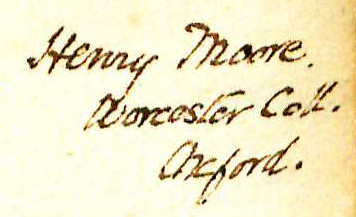 Henry Moore.
Worcester Coll.
Oxford.